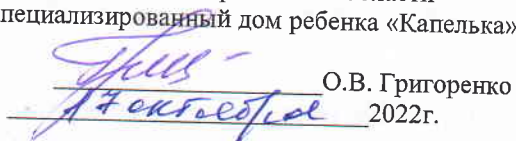 пециализированный дом ребенка «Капелька»
О.В. Григоренко
17 октября 2022г.